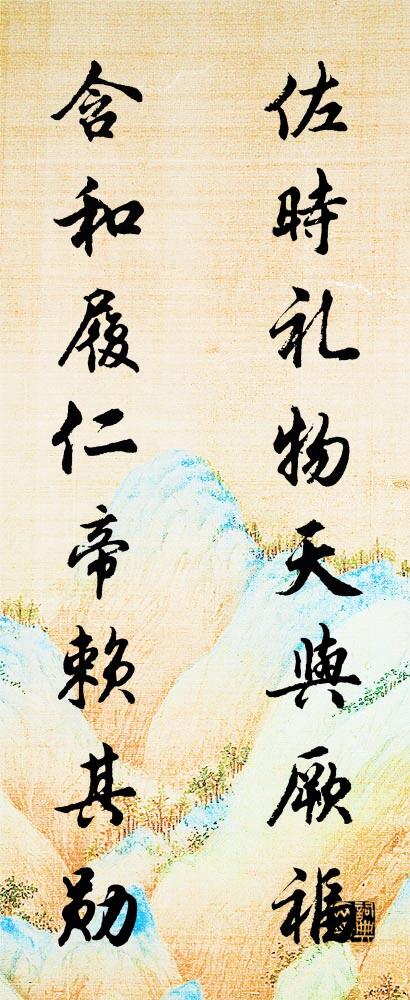 佐時礼物天與厥福
含和履仁帝赖其勋